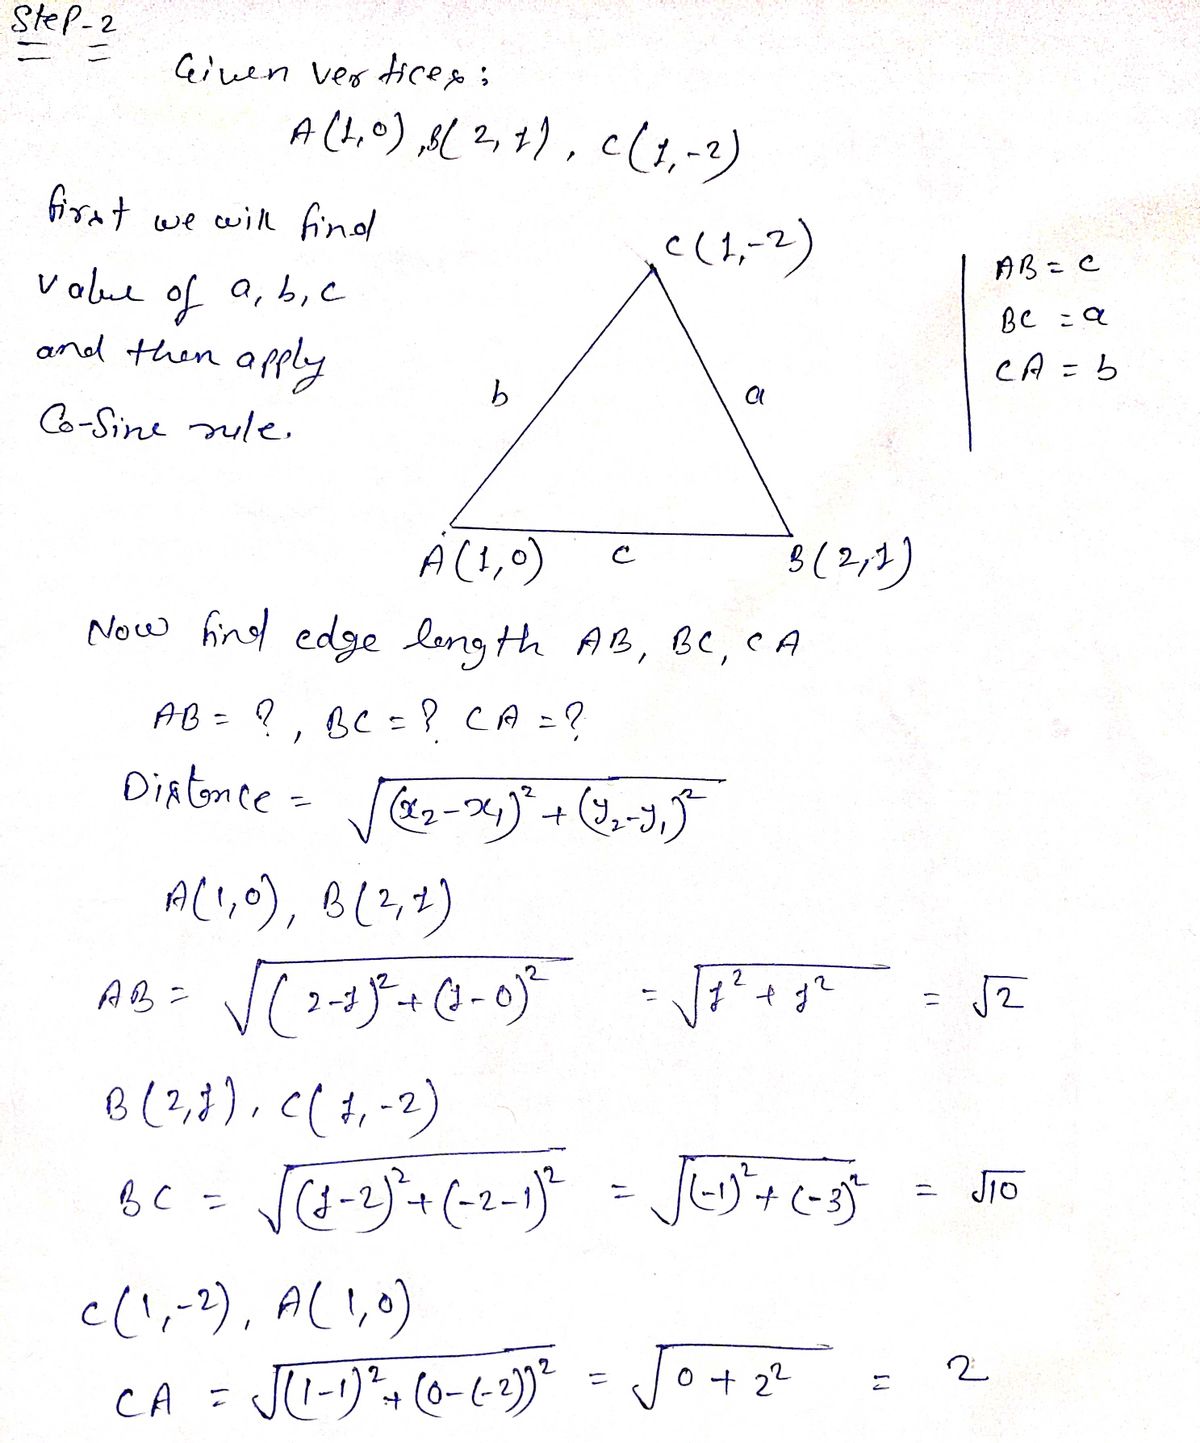 Step-2
Given vertices;
A(1,0), B(2,1), C(1,-2)
first we will find
value of a, b, c
and then apply
Co-Sine rule.
C(1,-2)
b
a
A(1,0)
c
B(2,1)
AB = c
BC = a
CA = b
Now find edge length AB, BC, CA
AB = ?, BC = ? CA = ?
Distance = √(x₂-x₁)² + (y₂-y₁)²
A(1,0), B(2,1)
AB = √(2-1)² + (1-0)² = √1² + 1² = √2
B(2,1), C(1,-2)
BC = √(1-2)² + (-2-1)² = √(-1)² + (-3)² = √10
C(1,-2), A(1,0)
CA = √(1-1)² + (0-(-2))² = √0 + 2² = 2